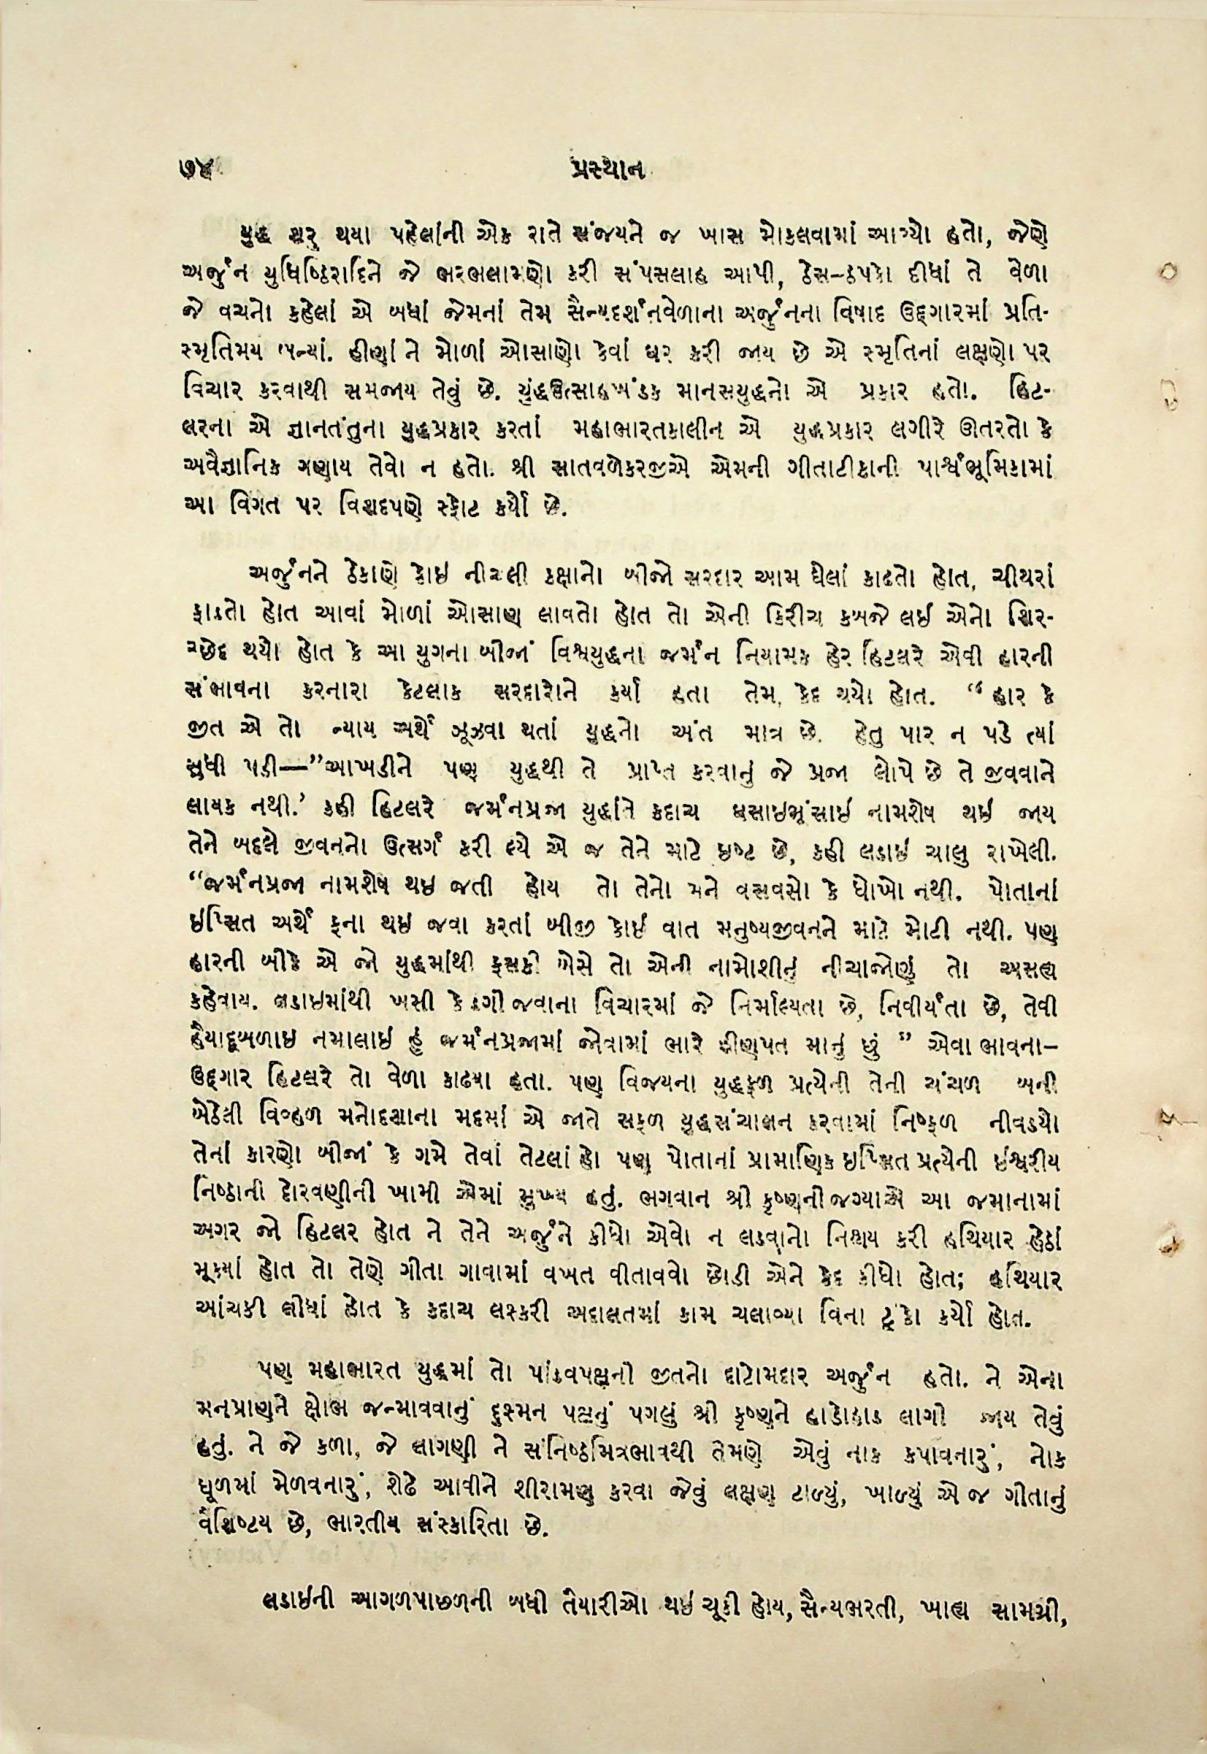 ૭૪
પ્રસ્થાન
યુદ્ધ શરુ થયા પહેલાંની એક રાતે સંજયને જ ખાસ મોકલવામાં આવ્યો હતો, જેણે
અર્જુન યુધિષ્ઠિરાદિને જે ભરભલામણો કરી સંપસલાહ આપી, ઠેસ-ઠપકા દીધાં તે વેળા
જે વચનો કહેલાં એ બધાં જેમનાં તેમ સૈન્યદર્શનવેળાના અર્જુનના વિષાદ ઉદ્‌ગારમાં પ્રતિ-
સ્મૃતિમય બન્યાં. હીણાં ને મોળાં ઓસાણો કેવાં ઘર કરી જાય છે એ સ્મૃતિનાં લક્ષણો પર
વિચાર કરવાથી સમજાય તેવું છે. યુદ્ધોત્સાહખંડક માનસયુદ્ધનો એ પ્રકાર હતો. હિટ-
લરના એ જ્ઞાનતંતુના યુદ્ધપ્રકાર કરતાં મહાભારતકાલીન એ યુદ્ધપ્રકાર લગીરે ઊતરતો કે
અવૈજ્ઞાનિક ગણાય તેવો ન હતો. શ્રી સાતવળેકરજીએ એમની ગીતાટીકાની પાર્શ્વભૂમિકામાં
આ વિગત પર વિશદપણે સ્ફોટ કર્યો છે.
અર્જુનને ઠેકાણે કોઇ નીચલી કક્ષાનો બીજો સરદાર આમ ઘેલાં કાઢતો હોત, ચીથરાં
ફાડતો હોત આવાં મોળાં ઓસાણ લાવતો હોત તો એની કિરીચ કબજે લઇ એનો શિર-
ચ્છેદ થયો હોત કે આ યુગના બીજાં વિશ્વયુદ્ધના જર્મન નિયામક હેર હિટલરે એવી હારની
સંભાવના કરનારા કેટલાક સરદારોને કર્યા હતા તેમ, કેદ થયો હોત. “હાર કે
જીત એ તો ન્યાય અર્થે ઝૂઝવા થતાં યુદ્ધનો અંત માત્ર છે. હેતુ પાર ન પડે ત્યાં
સુધી પડી—”આખડીને પણ યુદ્ધથી તે પ્રાપ્ત કરવાનું જે પ્રજા લોપે છે તે જીવવાને
લાયક નથી.’ કહી હિટલરે જર્મનપ્રજા યુદ્ધાંતે કદાચ ઘસાઇભૂંસાઇ નામશેષ થઇ જાય
તેને બદલે જીવનનો ઉત્સર્ગ કરી લ્યે એ જ તેને માટે ઇષ્ટ છે, કહી લડાઇ ચાલુ રાખેલી.
“જર્મનપ્રજા નામશેષ થઇ જતી હોય તો તેનો મને વસવસો કે ધોખો નથી. પોતાનાં
ઇપ્સિત અર્થે ફના થઇ જવા કરતાં બીજી કોઇ વાત મનુષ્યજીવનને માટે મોટી નથી. પણ
હારની બીકે એ જો યુદ્ધમાંથી ફસકી બેસે તો એની નામોશીનું નીચાજોણું તો અસહ્ય
કહેવાય. લડાઇમાંથી ખસી કે ડગી જવાના વિચારમાં જે નિર્માલ્યતા છે, નિર્વીર્યતા છે, તેવી
હૈયાદૂબળાઇ નમાલાઇ હું જર્મનપ્રજામાં જોવામાં ભારે હીણપત માનું છું ” એવા ભાવના—
ઉદ્‌ગાર હિટલરે તો વેળા કાઢ્યા હતા. પણ વિજયના યુદ્ધફળ પ્રત્યેની તેની ચંચળ બની
બેઠેલી વિહ્વળ મનોદશાના મદમાં એ જાતે સફળ યુદ્ધસંચાલન કરવામાં નિષ્ફળ નીવડ્યો
તેનાં કારણો બીજાં કે ગમે તેવાં તેટલાં હો પણ પોતાનાં પ્રામાણિક ઇપ્સિત પ્રત્યેની ઇશ્વરીય
નિષ્ઠાની દોરવણીની ખામી એમાં મુખ્ય હતું. ભગવાન શ્રી કૃષ્ણની જગ્યાએ આ જમાનામાં
અગર જો હિટલર હોત ને તેને અર્જુને કીધો એવો ન લડવાનો નિશ્ચય કરી હથિયાર હેઠાં
મૂક્યાં હોત તો તેણે ગીતા ગાવામાં વખત વીતાવવો છોડી એને કેદ કીધો હોત; હથિયાર
આંચકી લીધાં હોત કે કદાચ લશ્કરી અદાલતમાં કામ ચલાવ્યા વિના ટૂંકો કર્યો હોત.
પણ મહાભારત યુદ્ધમાં તો પાંડવપક્ષની જીતનો દાટોમદાર અર્જુન હતો. ને એના
મનપ્રાણને ક્ષોભ જન્માવવાનું દુશ્મન પક્ષનું પગલું શ્રી કૃષ્ણને હાડોહાડ લાગી જાય તેવું
હતું. ને જે કળા, જે લાગણી ને સંનિષ્ઠમિત્રભાવથી તેમણે એવું નાક કપાવનારું, નોક
ધૂળમાં મેળવનારું, શેઢે આવીને શીરામણ કરવા જેવું લક્ષણ ટાળ્યું, ખાળ્યું એ જ ગીતાનું
વૈશિષ્ટય છે, ભારતીય સંસ્કારિતા છે.
લડાઇની આગળપાછળની બધી તૈયારીઓ થઇ ચૂકી હોય, સૈન્યભરતી, ખાદ્ય સામગ્રી,